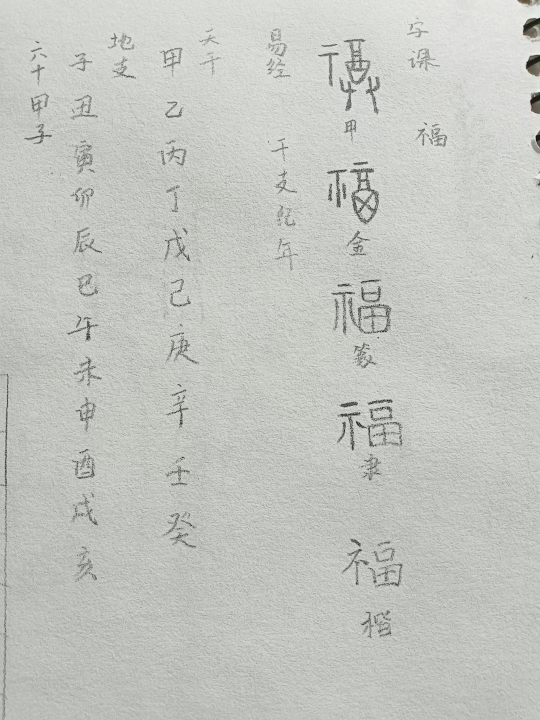 字课 福
福 甲
福 金
福 篆
福 隶
福 楷
易经 干支纪年
天干
甲乙丙丁戊己庚辛壬癸
地支
子丑寅卯辰巳午未申酉戌亥
六十甲子